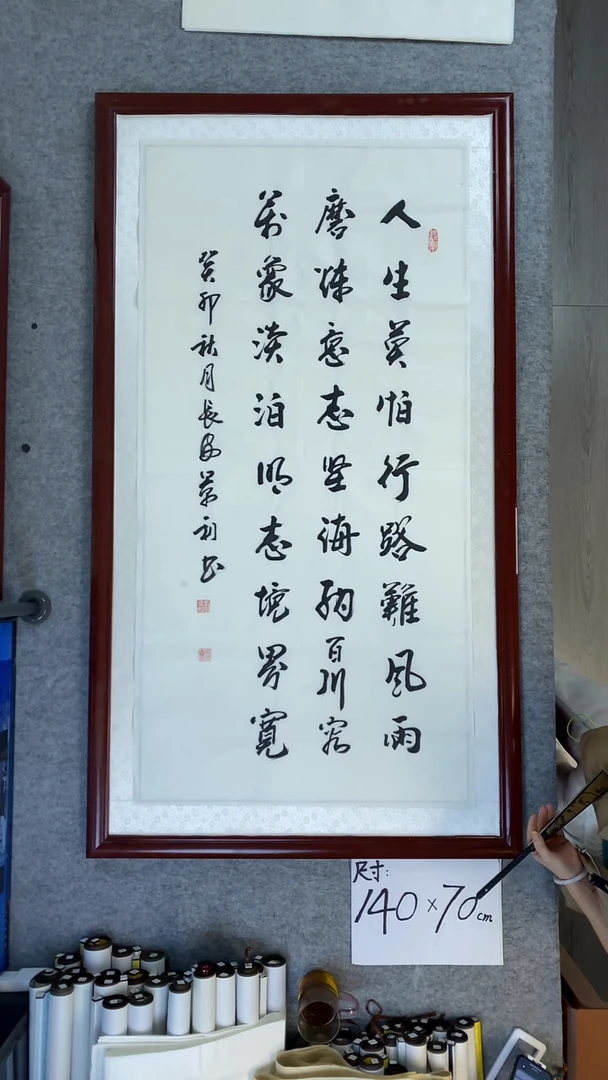 人生莫怕行路難風雨
磨煉意志堅海納百川容
萬象淡泊明志境界寬
癸卯秋月長海景利书
尺寸:
140×70cm